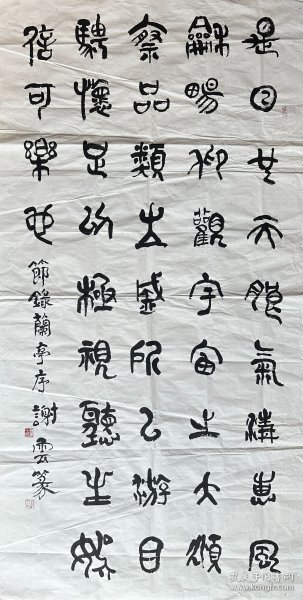 是日也天朗氣清惠風
龢暢仰觀宇宙之大頫
察品類之盛所以游目
騁懷足以極視聽之娛
信可樂也
節錄蘭亭序 謝雲篆
孔夫子旧书网